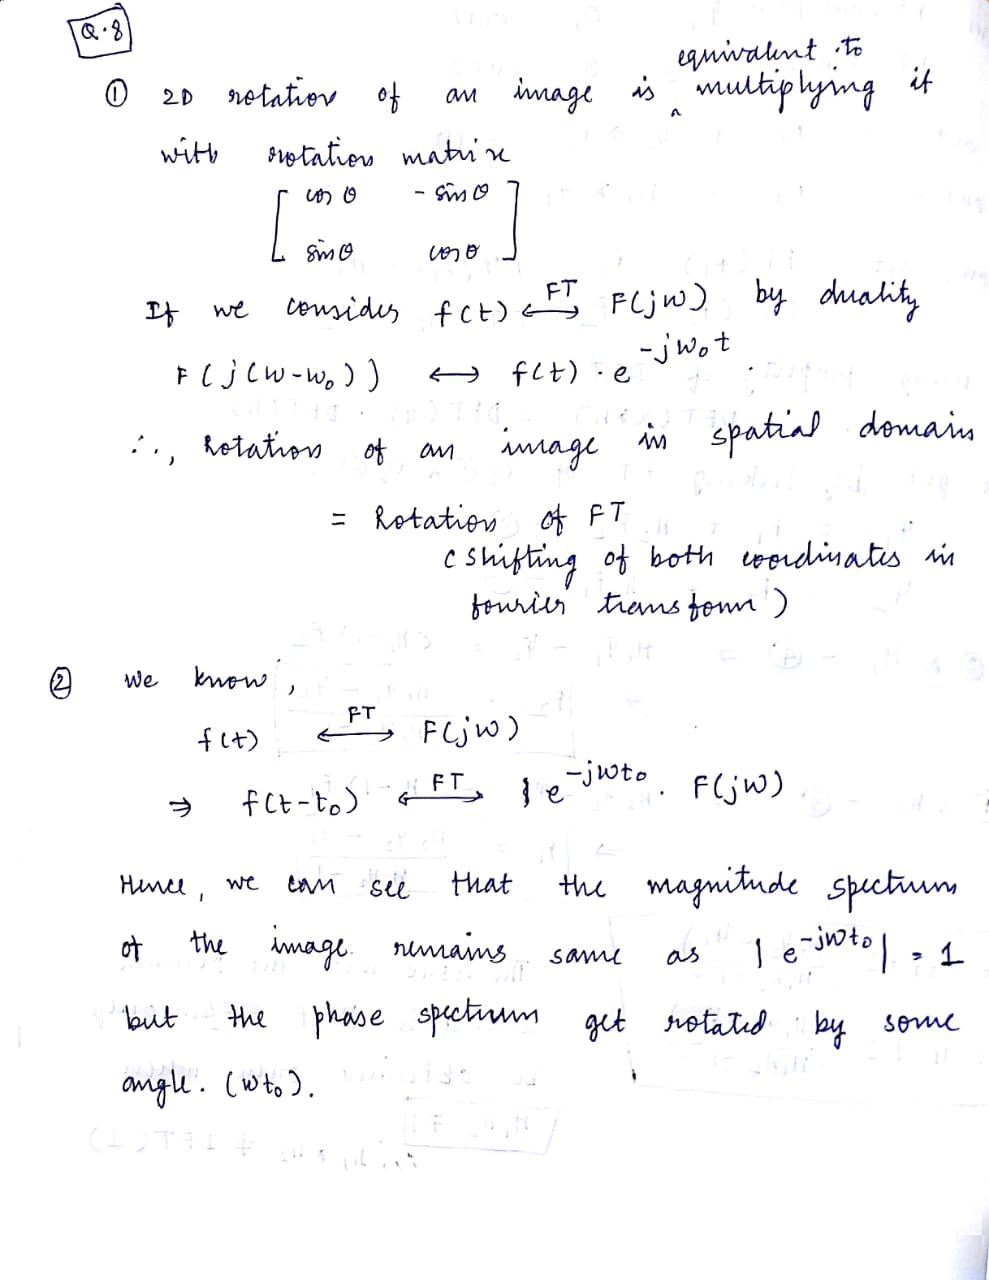 Q.8
equivalent to
① 2D rotation of an image is ^ multiplying it
with rotation matrix
[ cos θ - sin θ
sin θ cos θ ]
If we consider f(t) ⟷FT F(jw) by duality
F(j(w-w₀)) ⟷ f(t) · e^{-jw₀t}
∴, Rotation of an image in spatial domain
= Rotation of FT
(shifting of both coordinates in
fourier transform)
② we know,
f(t) ⟷FT F(jw)
⇒ f(t-t₀) ⟷FT e^{-jwt₀} . F(jw)
Hence, we can see that the magnitude spectrum
of the image remains same as |e^{-jwt₀}| = 1
but the phase spectrum get rotated by some
angle. (wt₀).